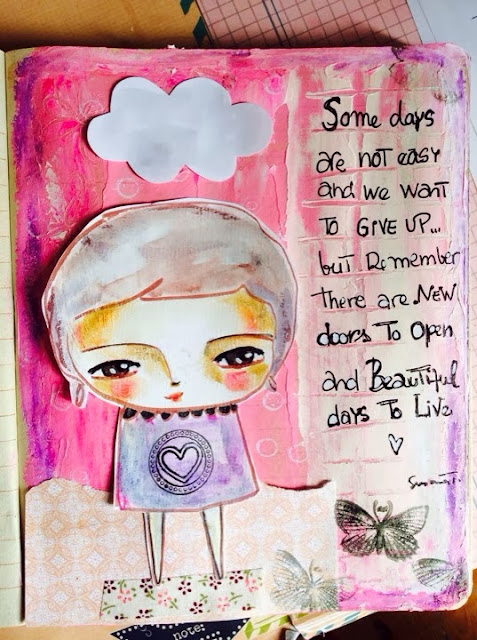 Some days
are not easy
and we want
To GIVE UP...
but Remember
there are NEW
doors To Open
and Beautiful
days To Live
note: